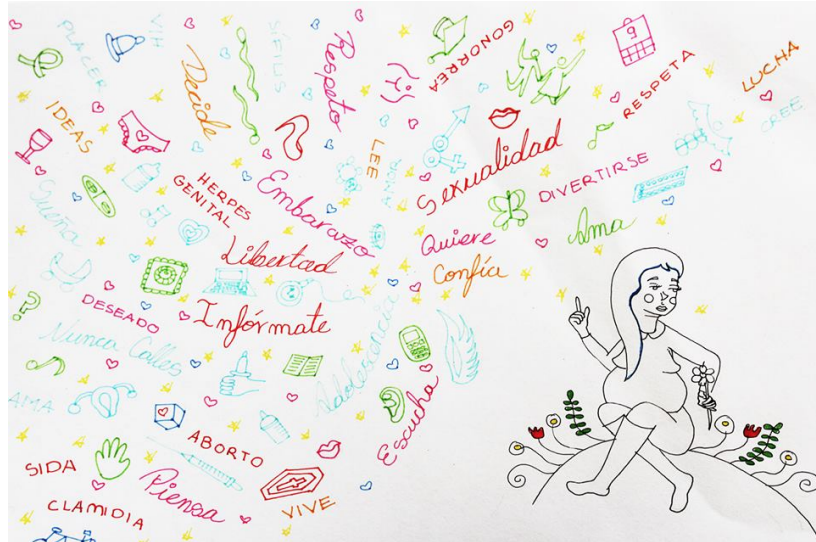 VIH
PLACER
SÍFILIS
Respeto
GONORREA
9
LUCHA
CREE
RESPETA
Decide
IDEAS
LEE
Sexualidad
DIVERTIRSE
HERPES
GENITAL
Embarazo
Sueña
Quiere
Ama
Libertad
Confía
DESEADO
Infórmate
Nunca Calles
Adolescencia
AMA
Escucha
ABORTO
SIDA
Piensa
VIVE
CLAMIDIA